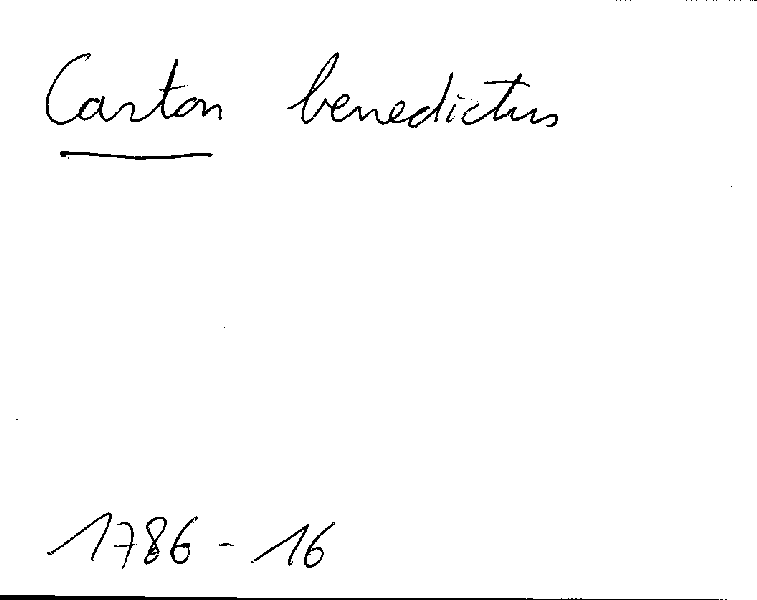 Carton benedictus
1786 - 16